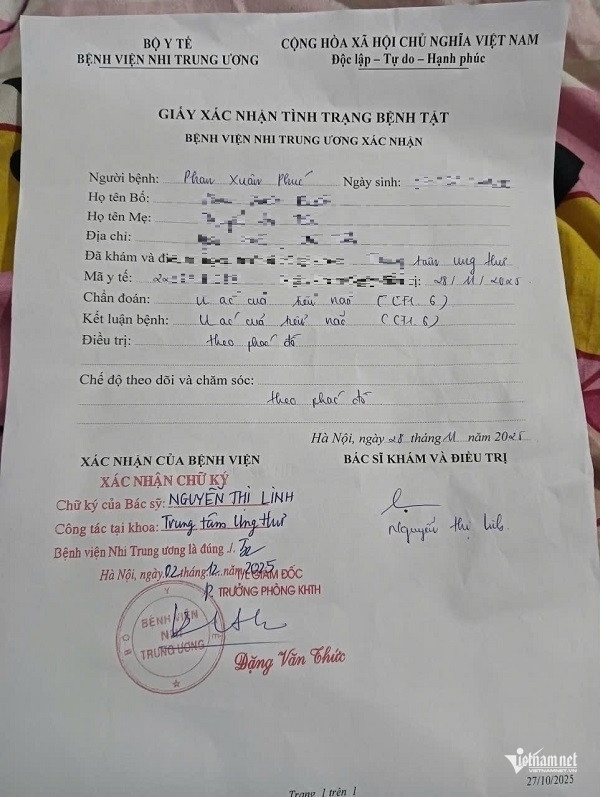 BỘ Y TẾ
BỆNH VIỆN NHI TRUNG ƯƠNG
CỘNG HÒA XÃ HỘI CHỦ NGHĨA VIỆT NAM
Độc lập – Tự do – Hạnh phúc
GIẤY XÁC NHẬN TÌNH TRẠNG BỆNH TẬT
BỆNH VIỆN NHI TRUNG ƯƠNG XÁC NHẬN
Người bệnh: Phan Xuân Phúc Ngày sinh:
Họ tên Bố:
Họ tên Mẹ:
Địa chỉ:
Đã khám và tâm ung thư
Mã y tế: 28/11/2025
Chẩn đoán: U ác của tiểu não (C71.6)
Kết luận bệnh: U ác của tiểu não (C71.6)
Điều trị: theo phác đồ
Chế độ theo dõi và chăm sóc:
theo phác đồ
Hà Nội, ngày 28 tháng 11 năm 2025
XÁC NHẬN CỦA BỆNH VIỆN
XÁC NHẬN CHỮ KÝ
Chữ ký của Bác sỹ: NGUYỄN THỊ LINH
Công tác tại khoa: Trung tâm Ung thư
Bệnh viện Nhi Trung ương là đúng ./.
Hà Nội, ngày 02 tháng 12 năm 2025
T/L GIÁM ĐỐC
P. TRƯỞNG PHÒNG KHTH
BỆNH VIỆN
NHI
TRUNG ƯƠNG
BỘ Y TẾ
Đặng Văn Thức
BÁC SĨ KHÁM VÀ ĐIỀU TRỊ
Nguyễn Thị Linh
Trang 1 trên 1
Vietnamnet
VIETNAMNET.VN
27/10/2025